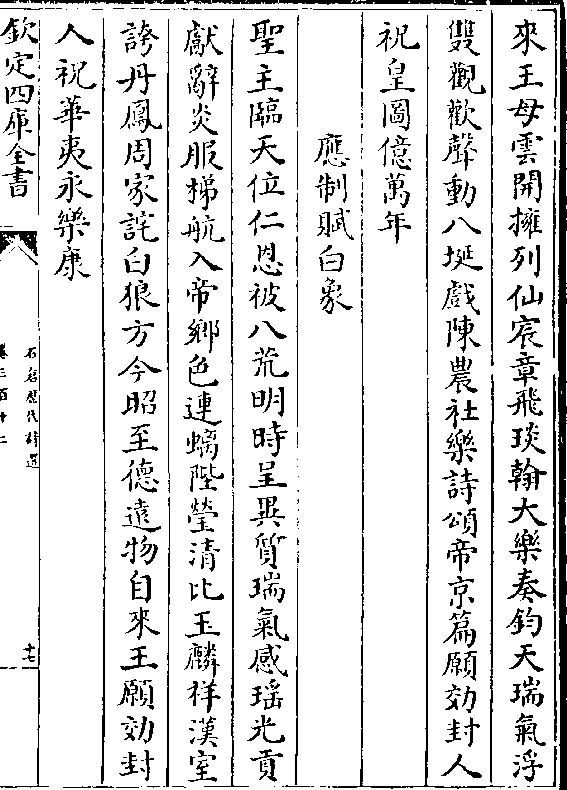 來王母雲開擁列仙宸章飛琰翰大樂奏鈞天瑞氣浮
雙觀歡聲動八埏戲陳農社樂詩頌帝京篇願効封人
祝皇圖億萬年
應制賦白象
聖主臨天位仁恩被八荒明時呈異質瑞氣感瑶光貢
獻辭炎服梯航入帝鄉色連螭陛瑩清比玉麟祥漢室
誇丹鳳周家詫白狼方今昭至德遠物自來王願効封
人祝華夷永樂康
欽定四庫全書
石倉歷代詩選
卷三百十二
十七